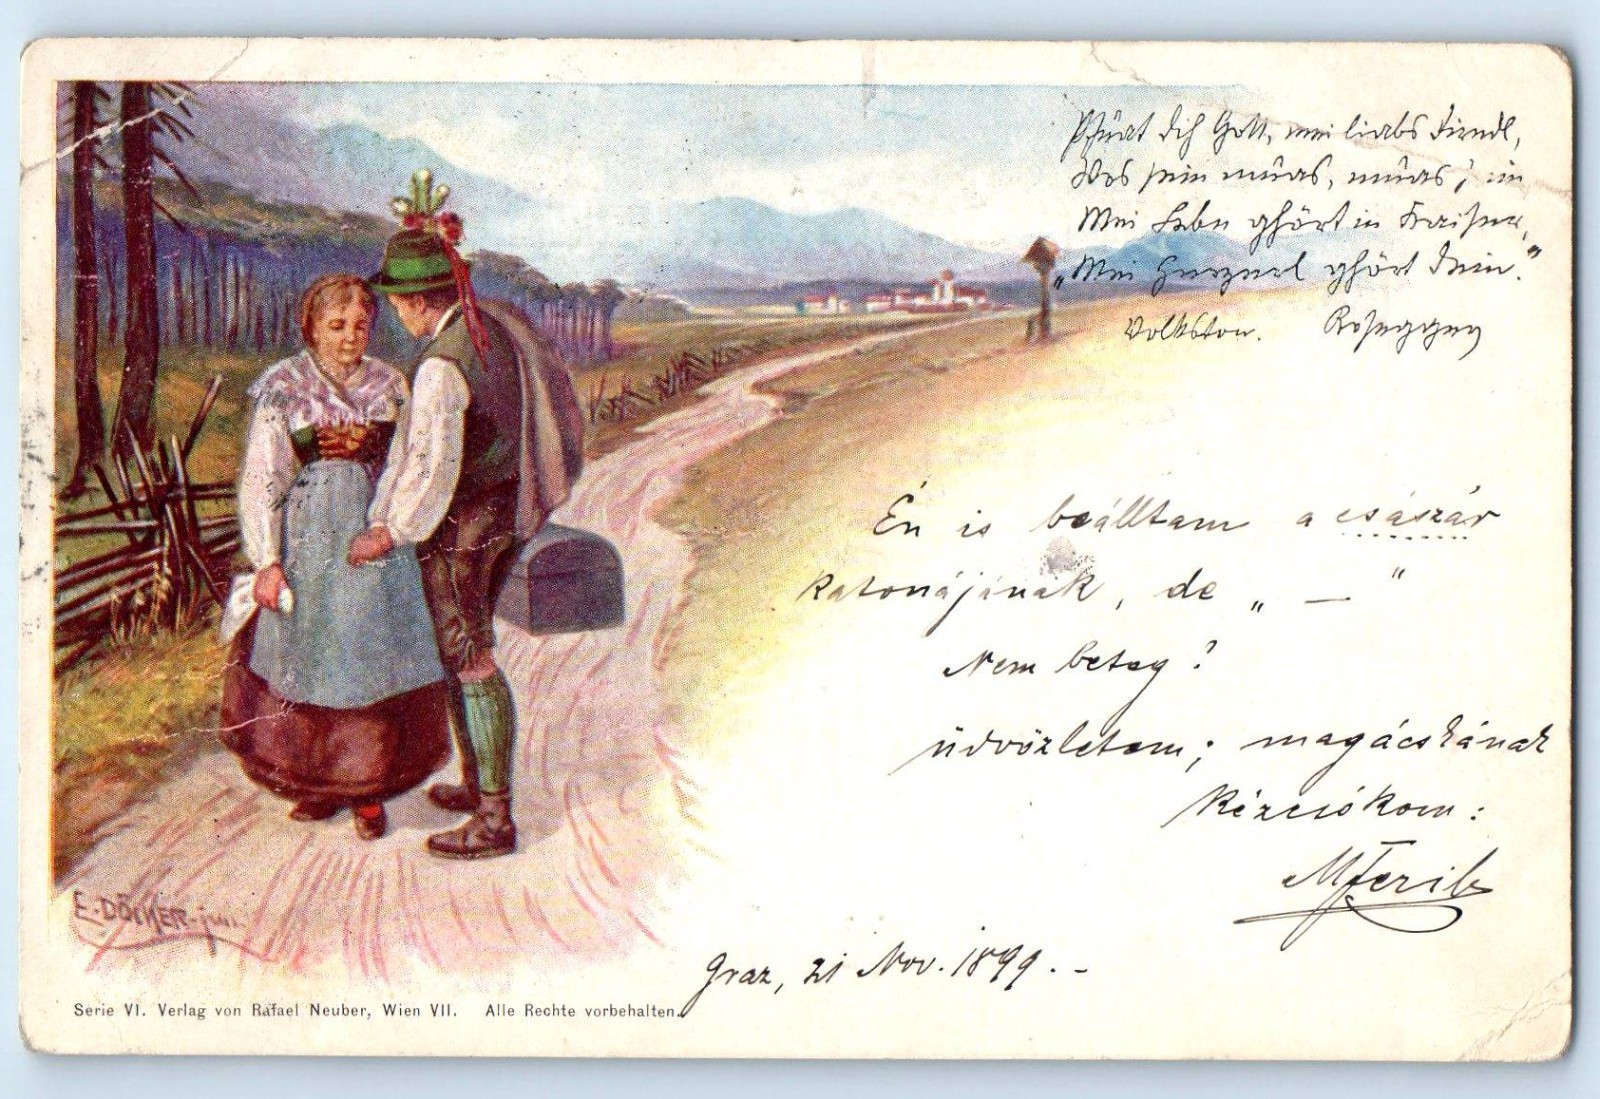 Pfüat dih Gott, mei liabs Dirndl,
Wos sein muas, muas, in
Mei Lebn ghört in Kaiser,
„Mei Herzerl ghört Dein.“
Volkston. Rosegger
Én is beálltam a császár
katonájának, de „ — “
Nem beteg?
üdvözletem; magácskának
Kézcsókom:
MFerik
Graz, 21 Nov. 1899. -
E. DÖCKER-jun.
Serie VI. Verlag von Rafael Neuber, Wien VII. Alle Rechte vorbehalten.